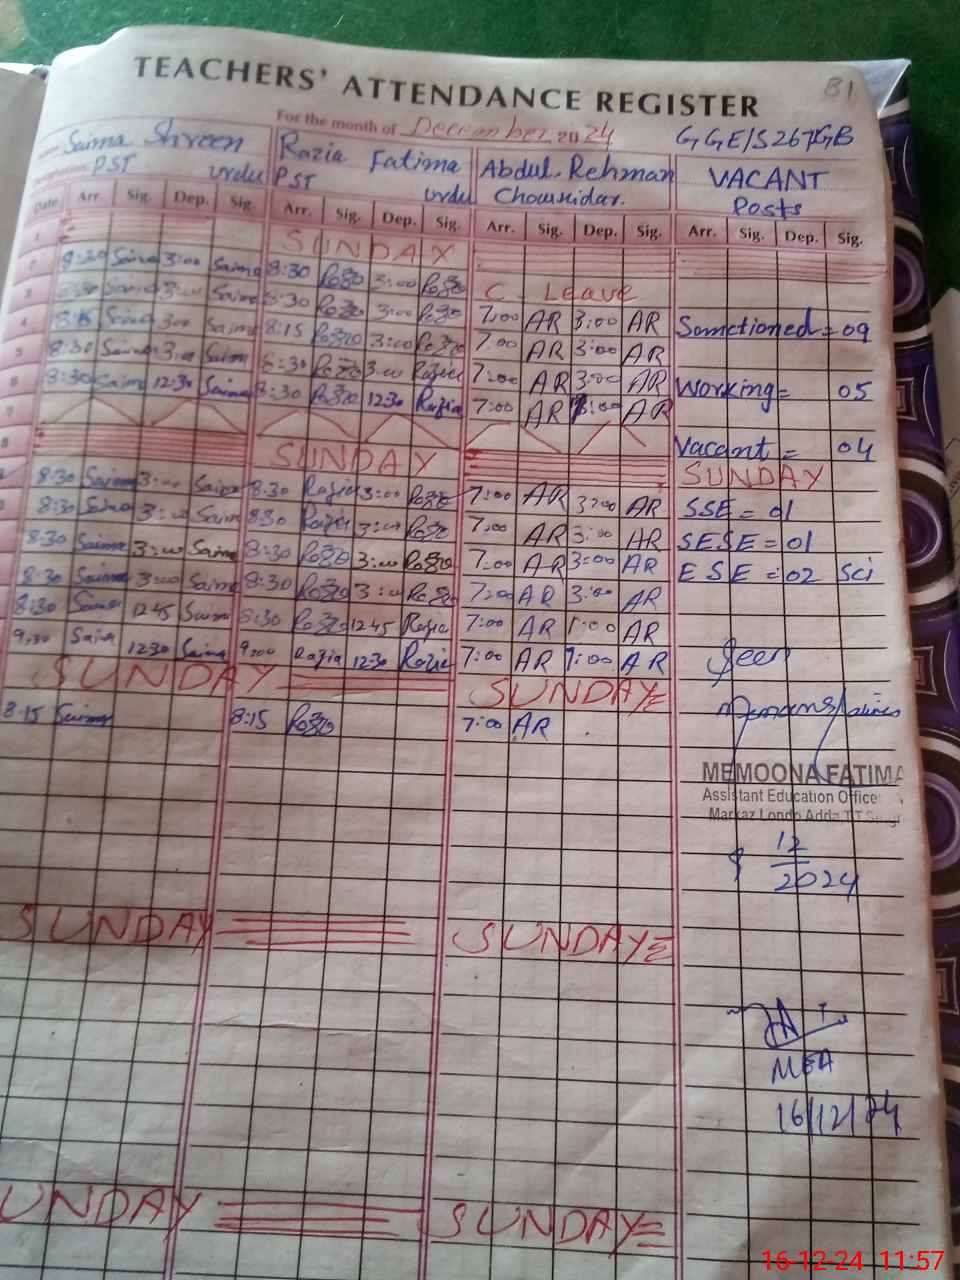 TEACHERS' ATTENDANCE REGISTER
B1
For the month of December 2024
GGE/S 267/GB
Saima Shreen
PST urdu
Razia Fatima
PST urdu
Abdul Rehman
Chowkidar.
VACANT
Posts
Date Arr. Sig. Dep. Sig. Arr. Sig. Dep. Sig. Arr. Sig. Dep. Sig. Arr. Sig. Dep. Sig.
1 SUNDAY
2 8:30 Saima 3:00 Saima 8:30 3:00 C. Leave
3 8:30 Saima 3:00 Saima 8:30 3:00 7:00 AR 3:00 AR
4 8:15 Saima 3:00 Saima 8:15 3:00 7:00 AR 3:00 AR
5 8:30 Saima 3:00 Saima 8:30 3:00 Razia 7:00 AR 3:00 AR
6 8:30 Saima 12:30 Saima 8:30 12:30 Razia 7:00 AR 1:00 AR
7
8 SUNDAY
8:30 Saima 3:00 Saima 8:30 Razia 3:00 7:00 AR 3:00 AR
8:30 Saima 3:00 Saima 8:30 Razia 3:00 7:00 AR 3:00 AR
8:30 Saima 3:00 Saima 8:30 3:00 7:00 AR 3:00 AR
8:30 Saima 3:00 Saima 8:30 3:00 7:00 AR 3:00 AR
8:30 Saima 12 45 Saima 8:30 12 45 Razia 7:00 AR 1:00 AR
9:00 Saima 12:30 Saima 9:00 Razia 12:30 Razia 7:00 AR 1:00 AR
SUNDAY SUNDAY
8-15 Saima 8:15 7:00 AR
SUNDAY SUNDAY
UNDAY SUNDAY
Sanctioned = 09
Working = 05
Vacant = 04
SUNDAY
SSE = 01
SESE = 01
ESE = 02 Sci
Seen
MEMOONA FATIMA
Assistant Education Officer
Markaz Londo Adda T.T.
12
2024
MEA
16/12/24
16-12-24 11:57